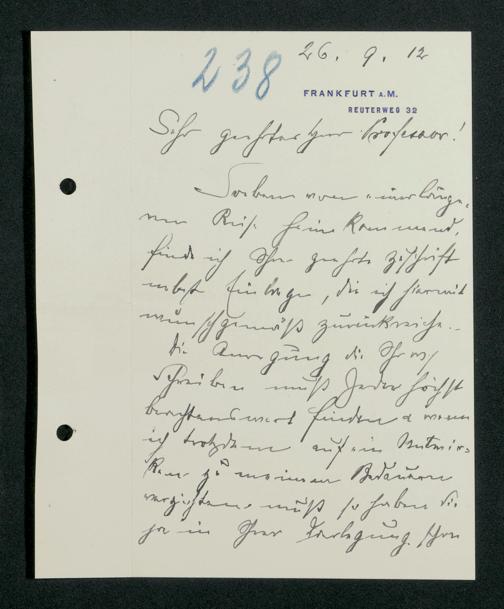 238
26. 9. 12
FRANKFURT A.M.
REUTERWEG 32
Sehr geehrter Herr Professor!
Soeben von einer länge-
ren Reise heimkommend,
finde ich Ihre geehrte Zuschrift
nebst Einlage, die ich hiermit
wunschgemäß zurückreiche.
Die Anregung die Ihr
Schreiben muß Jeder höchst
beachtenswert finden & wenn
ich trotzdem auf ein Mitwir-
ken zu meinem Bedauern
verzichten muß, so haben Sie
ja in Ihrer Darlegung schon